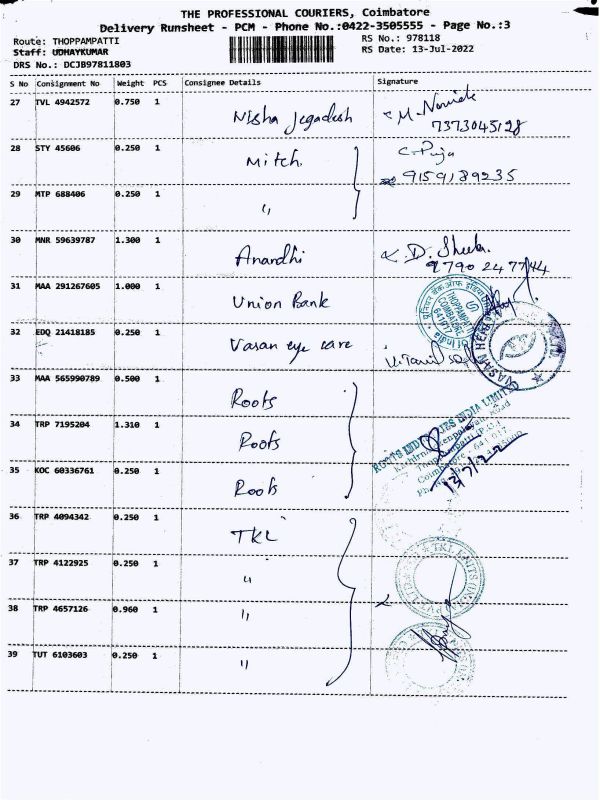 THE PROFESSIONAL COURIERS, Coimbatore
Delivery Runsheet - PCM - Phone No.:0422-3505555 - Page No.:3
Route: THOPPAMPATTI RS No.: 978118
Staff: UDHAYKUMAR RS Date: 13-Jul-2022
DRS No.: DCJB97811803
S No Consignment No Weight PCS Consignee Details Signature
27 TVL 4942572 0.750 1 Nisha Jegadesh
7373045128
28 STY 45606 0.250 1 Mitch. C. Puja
9159189235
29 MTP 688406 0.250 1 "
30 MNR 59639787 1.300 1 Anandhi D. Sheeba
9790247744
31 MAA 291267605 1.000 1 Union Bank
THOPPAMPATTI
COIMBATORE
641017
32 EDQ 21418185 0.250 1 Vasan eye care
VASAN
33 MAA 565990789 0.500 1 Roots
34 TRP 7195204 1.310 1 Roots
ROOTS INDUSTRIES INDIA LIMITED
35 KOC 60336761 0.250 1 Roots
13/7/22
36 TRP 4094342 0.250 1 TKL
37 TRP 4122925 0.250 1 "
TKL KNITS
38 TRP 4657126 0.960 1 "
39 TUT 6103603 0.250 1 "